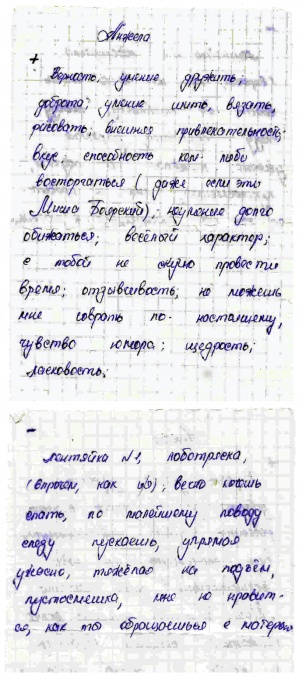 Анжела
+
Верность, умение дружить;
доброта; умение шить, вязать,
рисовать, внешняя привлекательность,
вкус, способность кем-либо
восторгаться (даже если это
Миша Боярский); неумение долго
обижаться; весёлый характер;
с тобой не скучно провести
время; отзывчивость; не можешь
мне соврать по-настоящему,
чувство юмора; щедрость;
ласковость.
-
лентяйка №1, лоботряска,
(впрочем, как и я); вечно хочешь
спать, по малейшему поводу
слезу пускаешь, упрямая
ужасно, тяжёлая на подъём,
пустосмешка, мне не нравит-
ся, как ты обращаешься с матерью